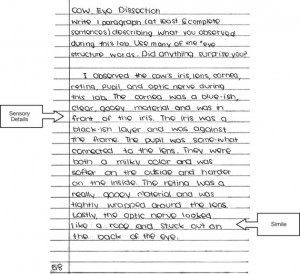 Cow Eye Dissection
Write 1 paragraph (at least 8 complete
sentences) describing what you observed
during this lab. Use many of the "eye
structure words. Did anything surprise you?
I observed the cow's iris, lens, cornea,
retina, pupil, and optic nerve during
this lab. The cornea was a blue-ish,
clear, gooey material and was in
front of the iris. The iris was a
black-ish layer and was against
the frame. The pupil was some-what
connected to the lens. They were
both a milky color and was
softer on the outside and harder
on the inside. The retina was a
really gooey material and was
tightly wrapped around the lens.
Lastly, the optic nerve looked
like a rope and stuck out on
the back of the eye.
58
Sensory
Details
Simile